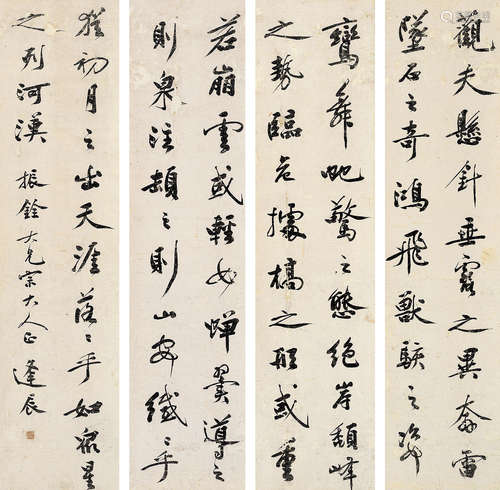 觀夫懸針垂露之異奔雷
墜石之奇鴻飛獸駭之姿
鸞舞虵驚之態絕岸頹峰
之勢臨危據槁之形或重
若崩雲或輕如蟬翼導之
則泉注頓之則山安纖〻乎
猶初月之出天涯落〻乎如衆星
之列河漢 振銓大兄宗大人正 逢辰